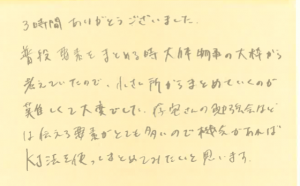 3時間ありがとうございました。
普段要素をまとめる時大体物事の大枠から
考えていたので、小さい所からまとめていくのが
難しくて大変でした。 さんの勉強会など
は伝える要素がとても多いので機会があれば
KJ法を使ってまとめてみたいと思います。